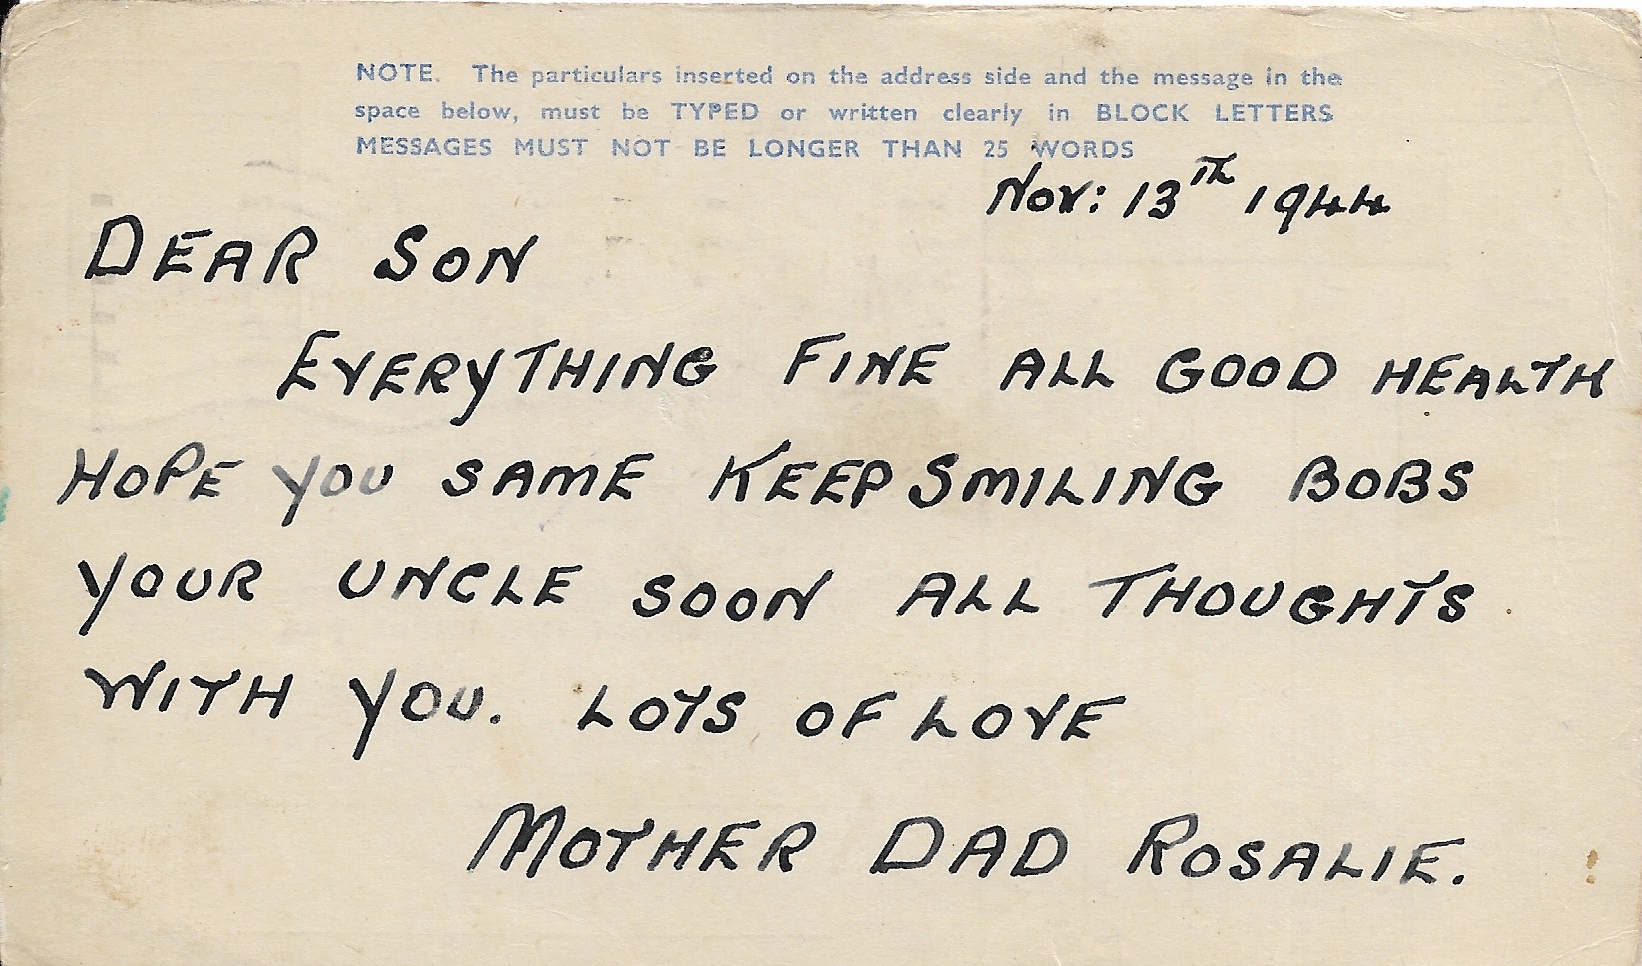 NOTE. The particulars inserted on the address side and the message in the
space below, must be TYPED or written clearly in BLOCK LETTERS
MESSAGES MUST NOT BE LONGER THAN 25 WORDS
Nov: 13TH 1944
DEAR SON
EVERYTHING FINE ALL GOOD HEALTH
HOPE YOU SAME KEEP SMILING BOBS
YOUR UNCLE SOON ALL THOUGHTS
WITH YOU. LOTS OF LOVE
MOTHER DAD ROSALIE.